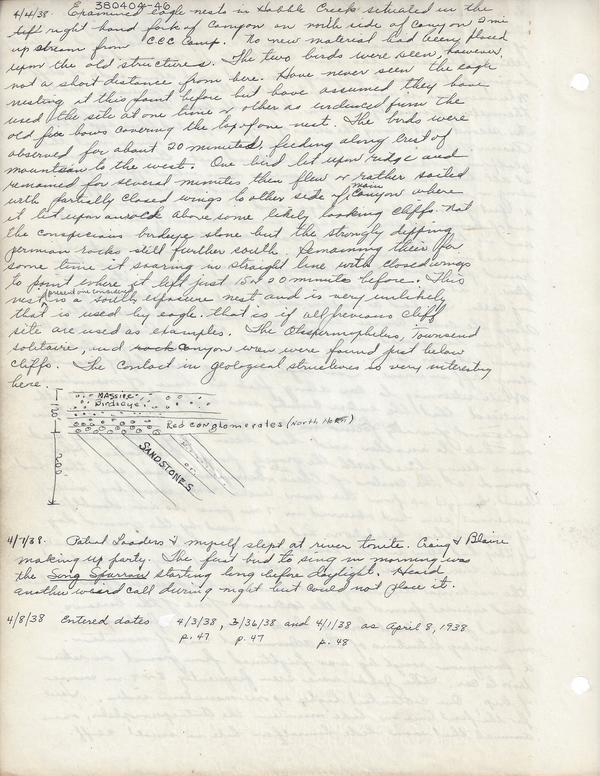 380404-46
4/4/38. Examined eagle nests in Hobble Creek situated in the
left right hand fork of Canyon on north side of canyon 2 mi
up stream from CCC Camp. No new material had been placed
upon the old structures. The two birds were seen, however,
not a short distance from here. Have never seen the eagle
nesting at this point before but have assumed they have
used the site at one time or other as evidenced from the
old fir bows covering the top of one nest. The birds were
observed for about 20 minutes, feeding along crest of
mountain to the west. One bird let upon ridge and
remained for several minutes then flew or rather sailed
with partially closed wings to other side of main canyon where
it let upon a rock above some likely looking cliffs. Not
the conspicious birdseye stone but the strongly dipping
german rocks still further south. Remaining their for
some time it soaring in straight line with closed wings
to point where it left just 15 or 20 minutes before. This
nest, is a south exposure nest and is very unlikely
that is used by eagle. that is if all previous cliff
site are used as examples. The Otospermophilus, Townsend
solitaire, and canyon wren were found just below
cliffs. The contact in geological structures is very interesting
here.
MASSIVE
Birdseye
Red conglomerates (North Horn)
SANDSTONES
200
4/7/38. Patrol Leaders & myself slept at river tonite. Craig & Blaine
making up party. The first bird to sing in morning was
the Song Sparrow starting long before daylight. Heard
another weird call during night but could not place it.
4/8/38 Entered dates 4/3/38, 3/36/38 and 4/1/38 as April 8, 1938
p. 47 p. 47 p. 48